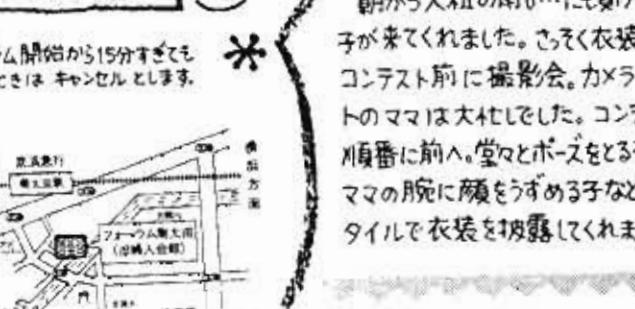 ム開始から15分すぎても
ときは キャンセル とします。
京浜急行
横浜方面
フォーラム南太田
朝から大粒の雨が…にも負け
子が来てくれました。さっそく衣装
コンテスト前に撮影会。カメラ
トのママは大忙しでした。コンテ
順番に前へ。堂々とポーズをとる
ママの腕に顔をうずめる子など
タイルで衣装を披露してくれま